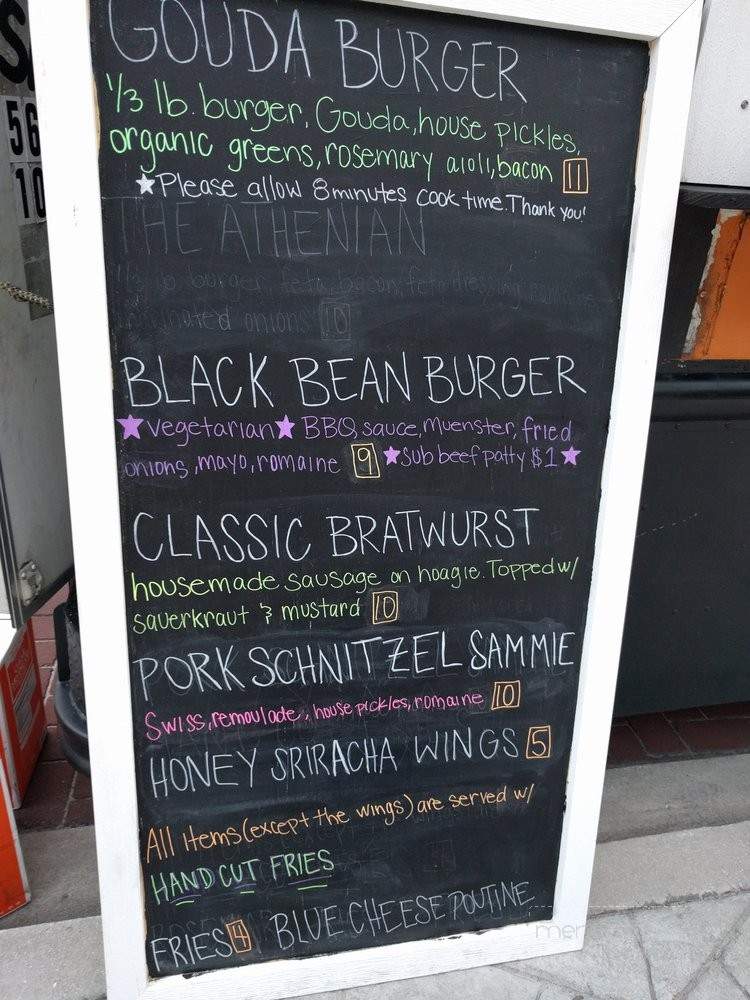 GOUDA BURGER
1/3 lb. burger, Gouda, house pickles,
organic greens, rosemary aioli, bacon 11
★Please allow 8 minutes cook time. Thank you!
THE ATHENIAN
1/3 lb burger, feta, bacon, feta dressing
onions 10
BLACK BEAN BURGER
★vegetarian★ BBQ sauce, muenster, fried
onions, mayo, romaine 9 ★sub beef patty $1★
CLASSIC BRATWURST
housemade sausage on hoagie. Topped w/
sauerkraut & mustard 10
PORK SCHNITZEL SAMMIE
Swiss, remoulade, house pickles, romaine 10
HONEY SRIRACHA WINGS 5
All items (except the wings) are served w/
HAND CUT FRIES
FRIES 4 BLUE CHEESE POUTINE
56
10